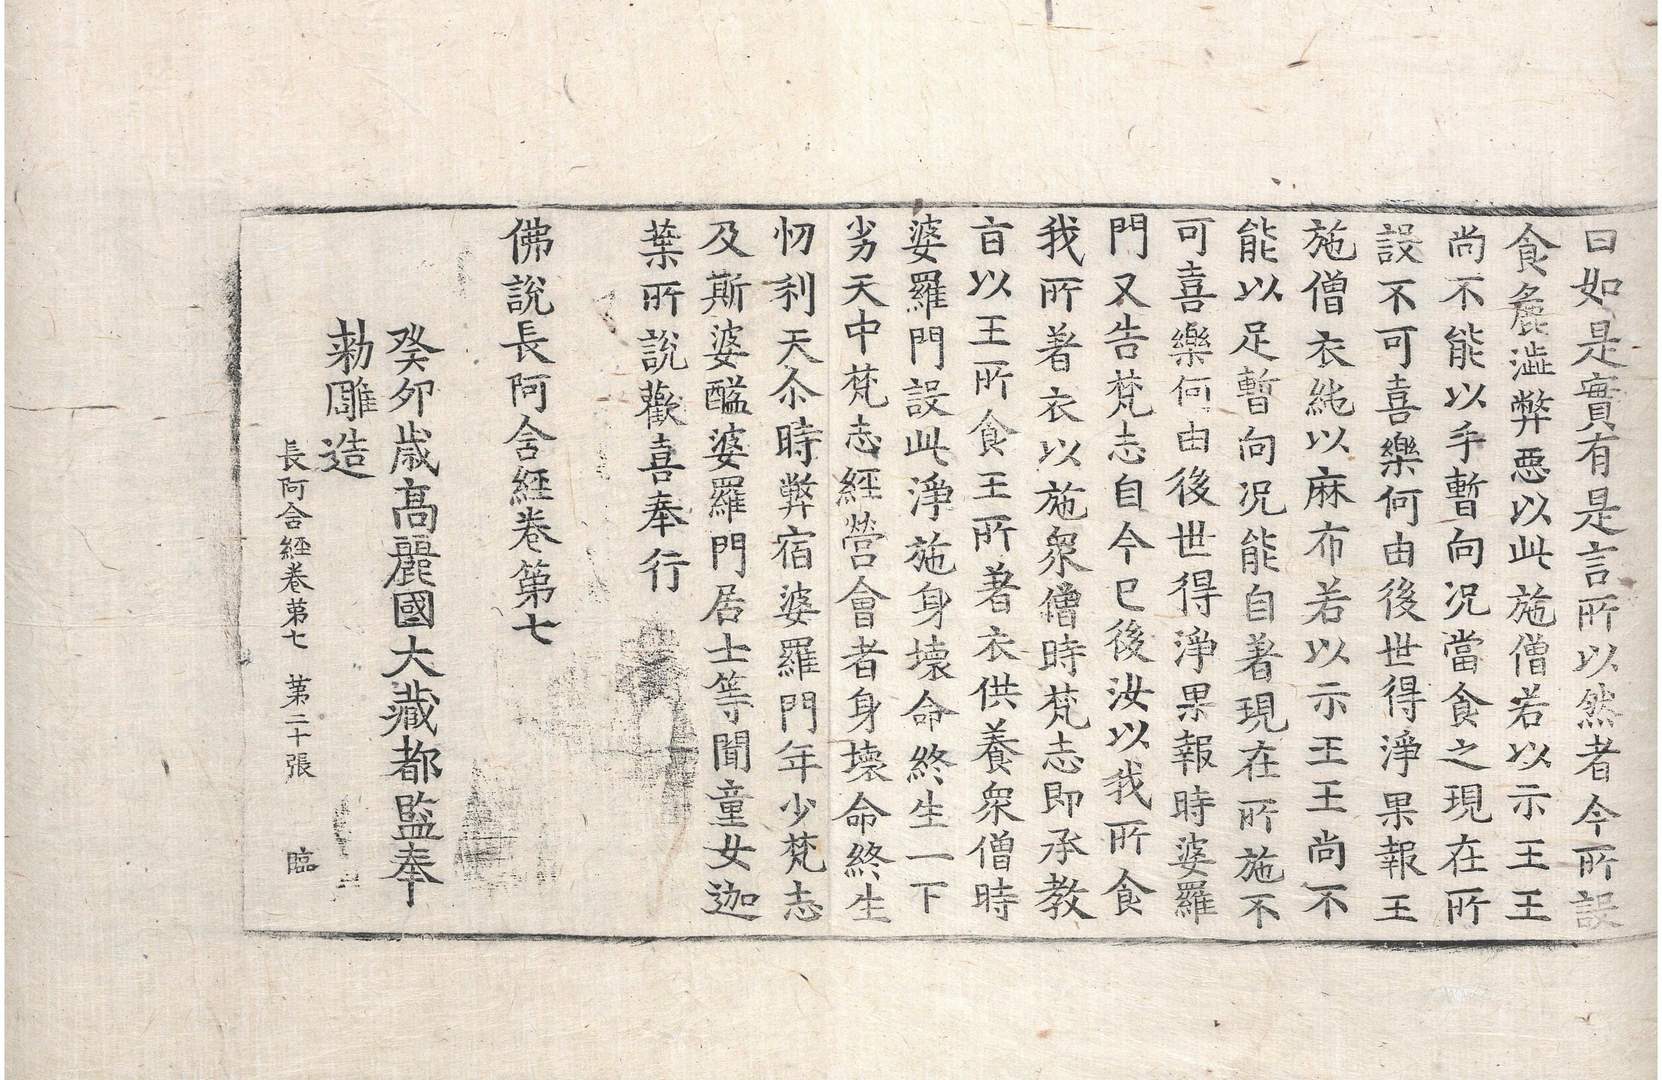 曰如是實有是言所以然者今所設
食麁澁弊惡以此施僧若以示王王
尚不能以手暫向況當食之現在所
設不可喜樂何由後世得淨果報王
施僧衣純以麻布若以示王王尚不
能以足暫向況能自著現在所施不
可喜樂何由後世得淨果報時婆羅
門又告梵志自今已後汝以我所食
我所著衣以施衆僧時梵志即承教
旨以王所食王所著衣供養衆僧時
婆羅門設此淨施身壞命終生一下
劣天中梵志經營會者身壞命終生
忉利天尒時弊宿婆羅門年少梵志
及斯婆醯婆羅門居士等聞童女迦
葉所說歡喜奉行
佛說長阿含經卷第七
癸卯歲高麗國大藏都監奉
勅雕造
長阿含經卷第七　第二十張　臨